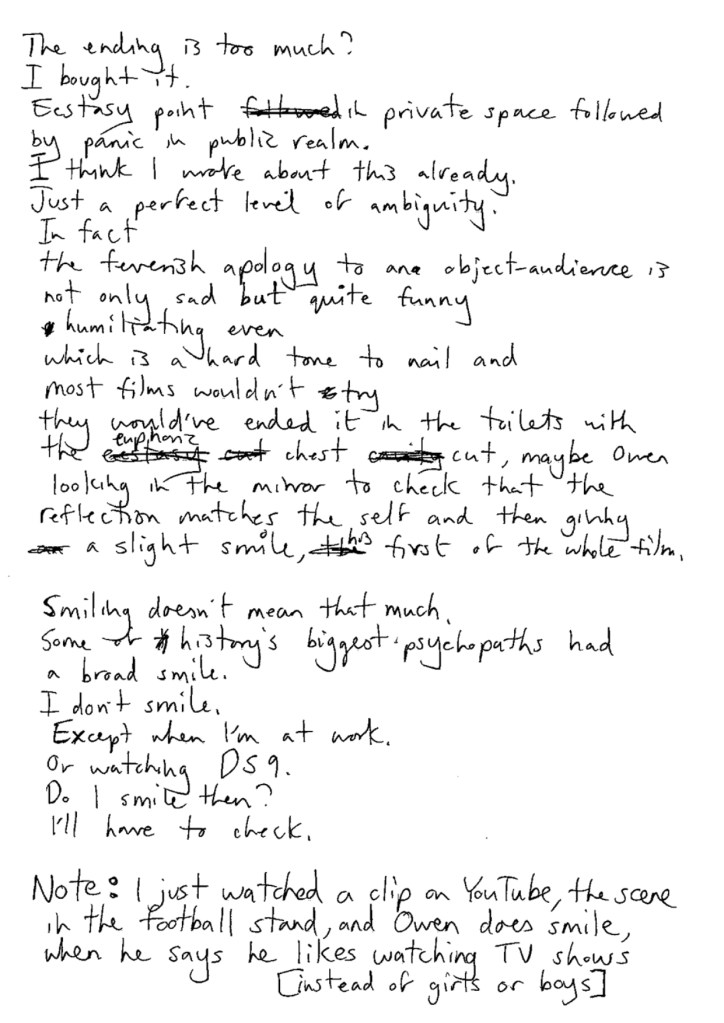 The ending is too much?
I bought it.
Ecstasy point followed in private space followed
by panic in public realm.
I think I wrote about this already.
Just a perfect level of ambiguity.
In fact
the feverish apology to an object-audience is
not only sad but quite funny
humiliating even
which is a hard tone to nail and
most films wouldn't try
they would've ended it in the toilets with
the euphoric ecstasy cut chest cavity cut, maybe Owen
looking in the mirror to check that the
reflection matches the self and then giving
a slight smile, his first of the whole film.
Smiling doesn't mean that much.
Some of history's biggest psychopaths had
a broad smile.
I don't smile.
Except when I'm at work.
Or watching DS9.
Do I smile then?
I'll have to check.
Note: I just watched a clip on YouTube, the scene
in the football stand, and Owen does smile,
when he says he likes watching TV shows
[instead of girls or boys]